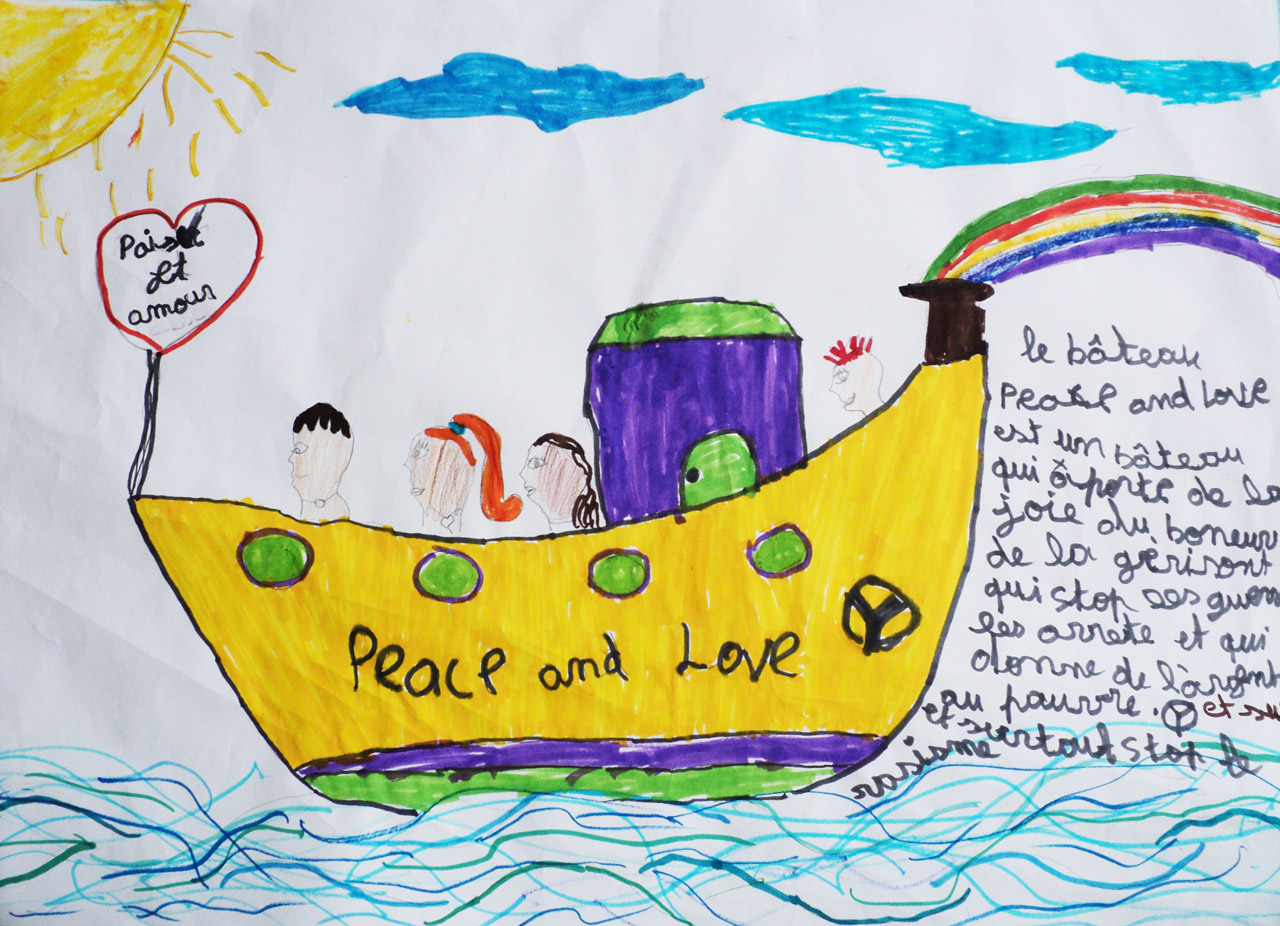 Paix
Et
amour
Peace and Love
le bâteau
Peace and Love
est un bâteau
qui âporte de la
joie du boneur
de la gérisont
qui stop les guerr
les arrete et qui
donne de l'àrgent
au pauvre. et su
et surtout stop le
rasisme